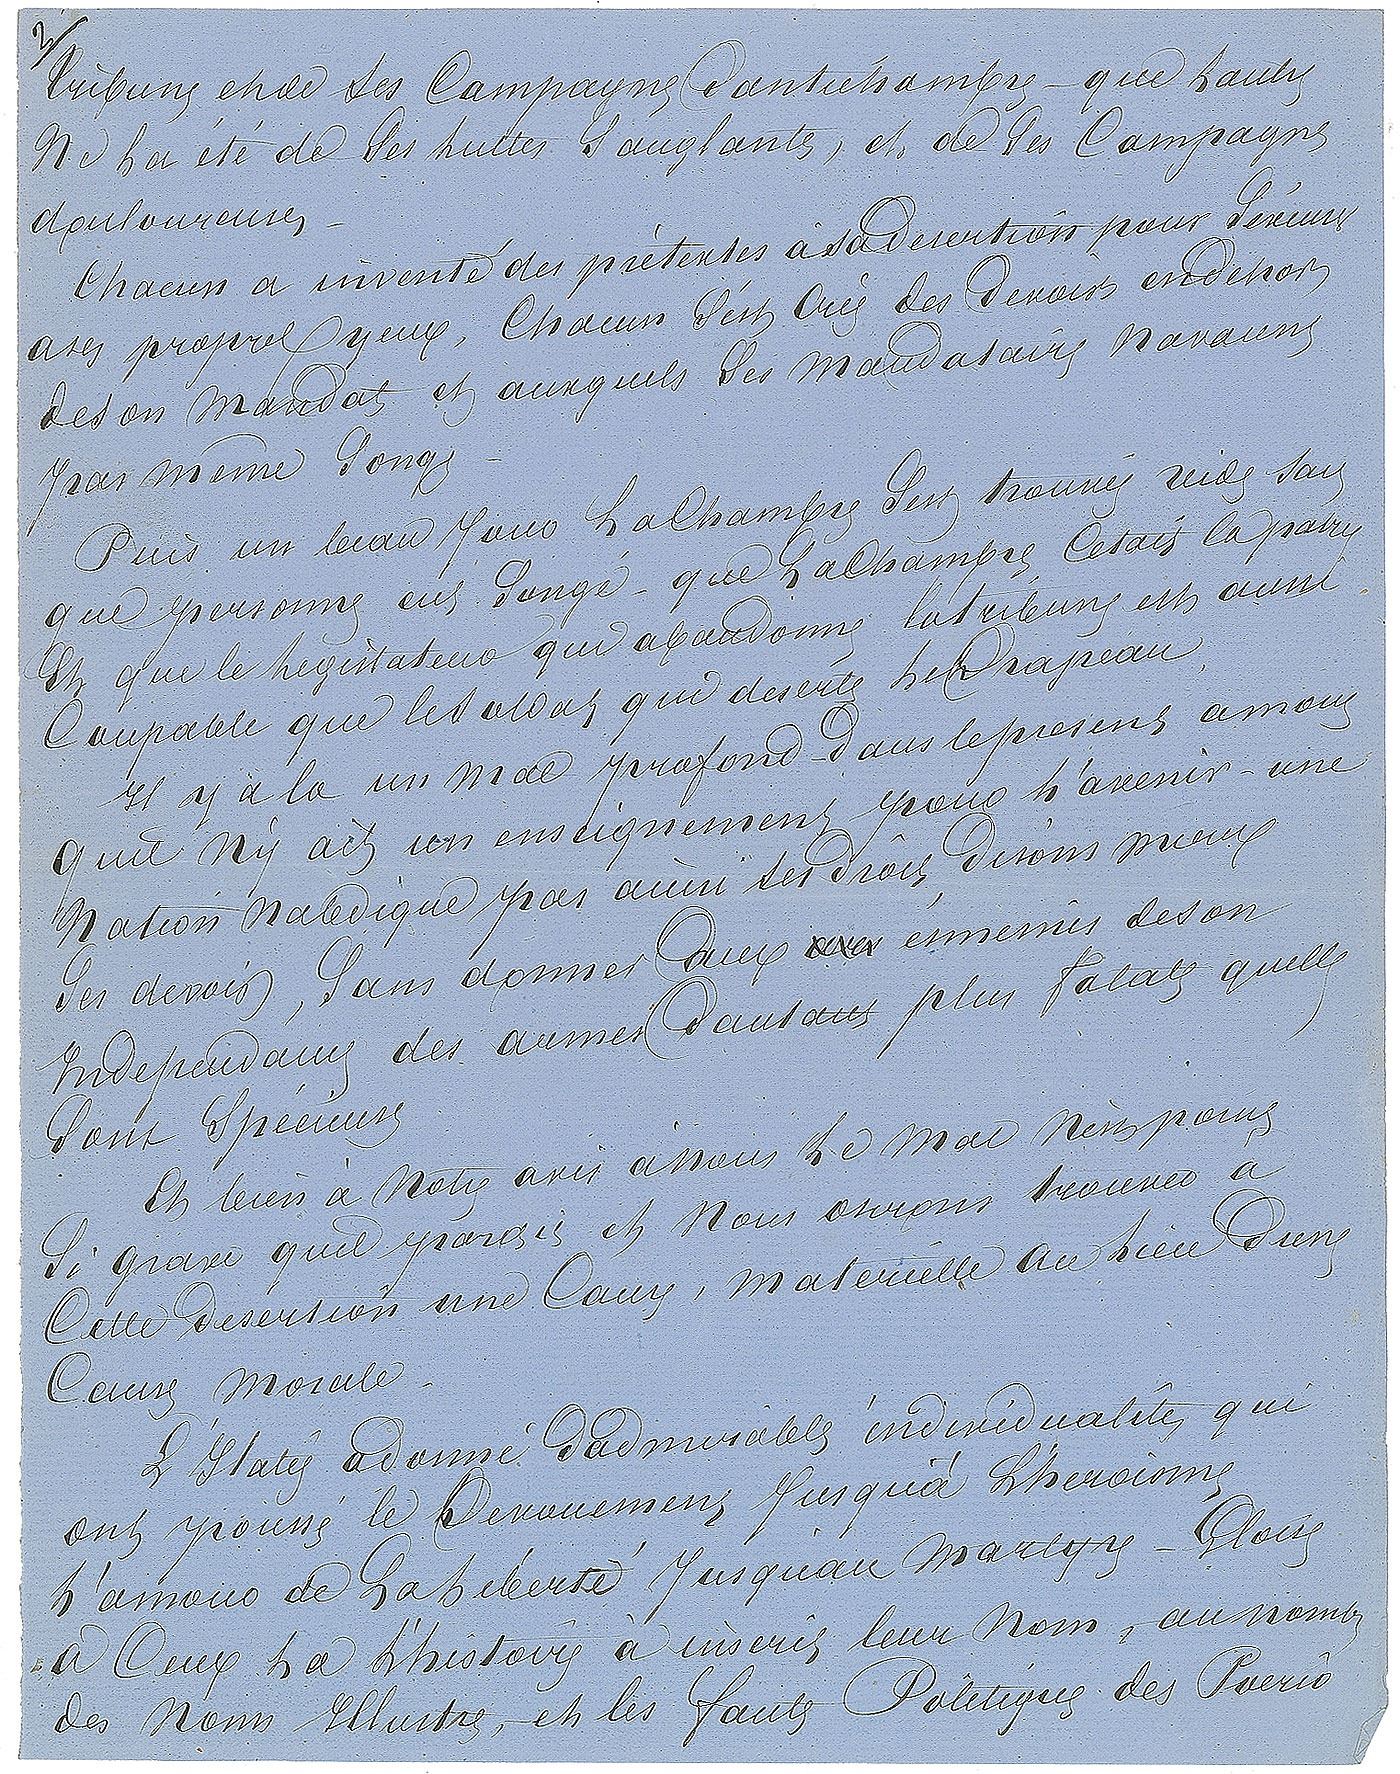 2/
tribune et de ses Campagnes d'antichambre - que l'autre
Ne l'a été de Ses luttes Sanglantes, et de Ses Campagnes
douloureuses -
Chacun a inventé des prétextes à sa Desertion pour S'excuser
a ses propres yeux, Chacun S'est Créé des Devoirs en dehors
de son Mandat et auxquels Ses Mandataires N'avaient
pas même Songé -
Puis un beau Jour La Chambre S'est trouvée vide sans
que personne eut Songé - que La Chambre C'etait la patrie
Et que le Legislateur qui abandonne la tribune est aussi
Coupable que le Soldat qui deserte Le Drapeau.
Il y a la un Mal profond Dans le present amoins
quil N'y ait un enseignement pour L'avenir - une
Nation N'abdique pas ainsi Ses droits, disons mieux
Ses devoirs, Sans donner aux ennemis de son
Independance des armes D'autant plus fatales quelles
Sont Specieuses
Et bien à Notre avis à Nous Le Mal N'est point
Si grave quil parait et Nous oserons trouver a
Cette Desertion une Cause, Materielle au Lieu D'une
Cause Morale -
L'Italie a donné D'admirables individualités qui
ont poussé le Devouement Jusqu'à L'heroisme
L'amour de La Liberté Jusqu'au Martyre - Gloire
a Ceux La L'histoire à inscrit leur Nom, au nombre
des Noms Illustres, et les fautes Politiques des Poerio